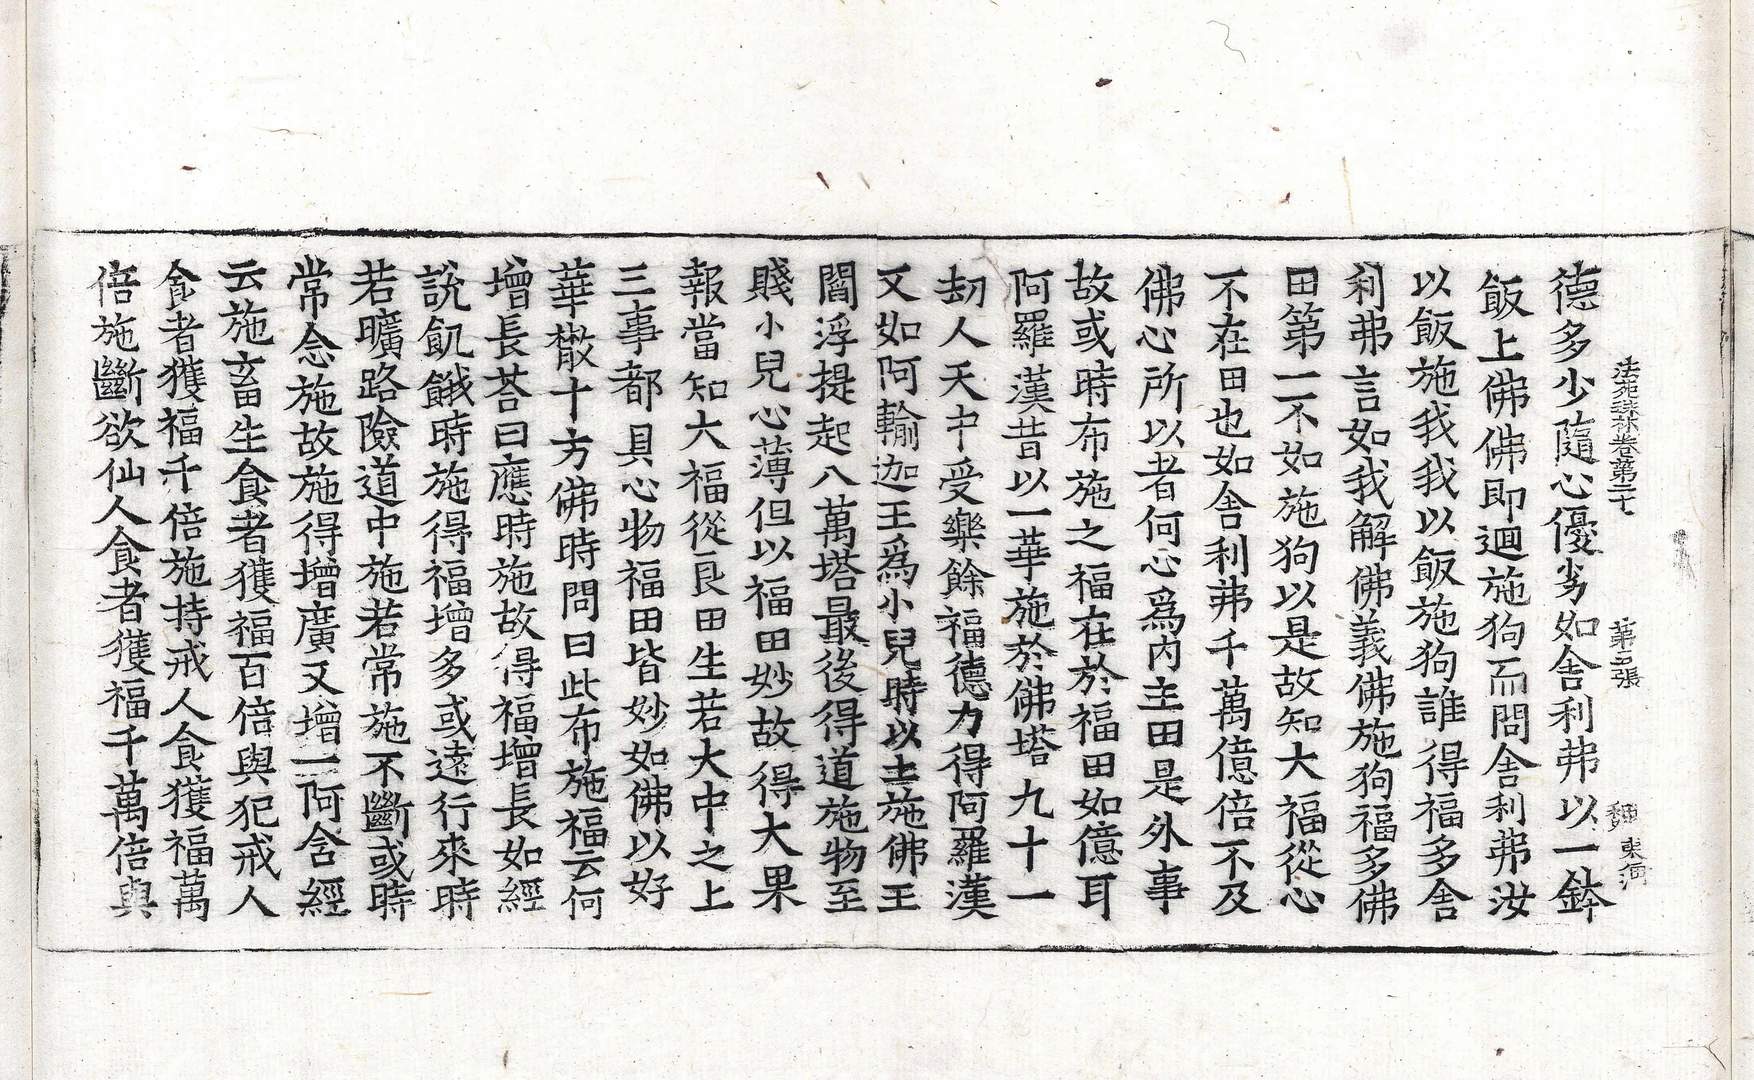 法苑珠林卷第二十 第五張 東河
德多少隨心優劣如舍利弗以一鉢
飯上佛佛即迴施狗而問舍利弗汝
以飯施我我以飯施狗誰得福多舍
利弗言如我解佛義佛施狗福多佛
田第一不如施狗以是故知大福從心
不在田也如舍利弗千萬億倍不及
佛心所以者何心爲内主田是外事
故或時布施之福在於福田如億耳
阿羅漢昔以一華施於佛塔九十一
劫人天中受樂餘福德力得阿羅漢
又如阿輸迦王爲小兒時以土施佛王
閻浮提起八萬塔最後得道施物至
賤小兒心薄但以福田妙故得大果
報當知大福從良田生若大中之上
三事都具心物福田皆妙如佛以好
華㪚十方佛時問曰此布施福云何
增長荅曰應時施故得福增長如經
說飢餓時施得福增多或遠行來時
若曠路險道中施若常施不斷或時
常念施故施得增廣又增一阿含經
云施畜生食者獲福百倍與犯戒人
食者獲福千倍施持戒人食獲福萬
倍施斷欲仙人食者獲福千萬倍與